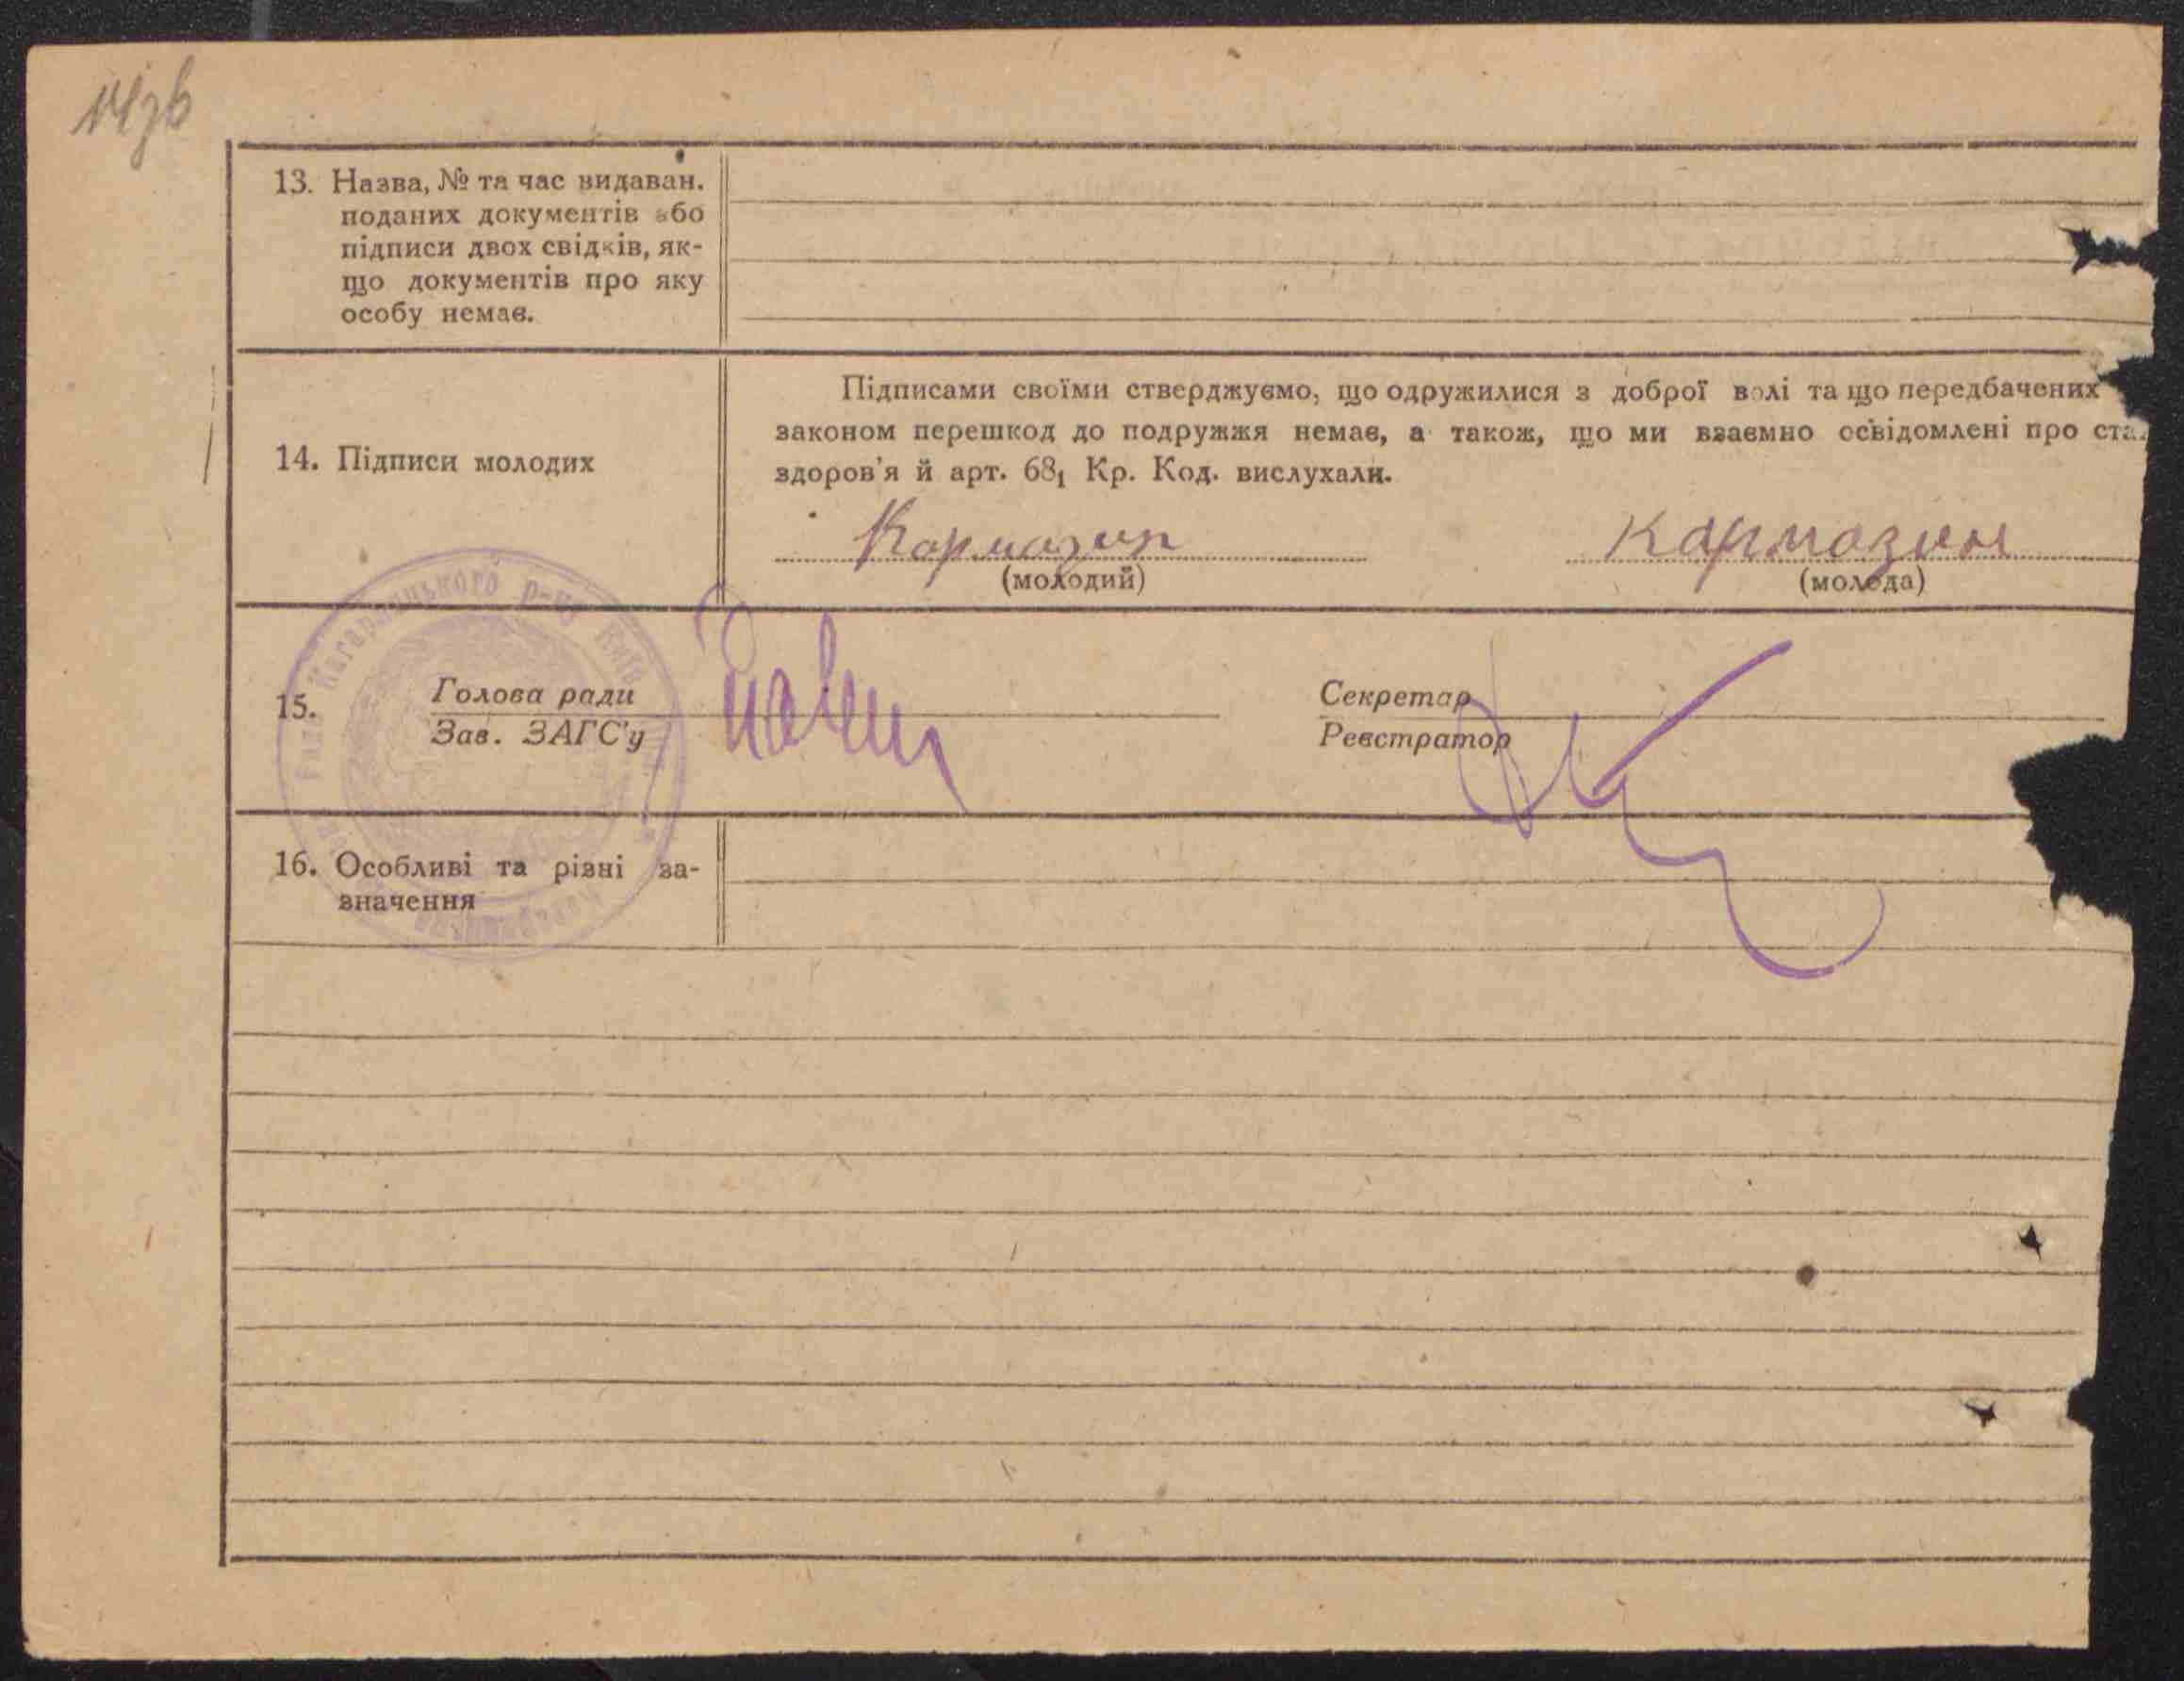 13. Назва, № та час видаван.
поданих документів або
підписи двох свідків, як-
що документів про яку
особу немає.
14. Підписи молодих
Підписами своїми стверджуємо, що одружилися з доброї волі та що передбачених
законом перешкод до подружжя немає, а також, що ми взаємно освідомлені про ста
здоров'я й арт. 68₁ Кр. Код. вислухали.
Кармазин
Кармазин
(молодий)
(молода)
15.
Голова ради
Зав. ЗАГС'у
Секретар
Реєстратор
Кагарлицького р-ну Київ
16. Особливі та різні за-
значення